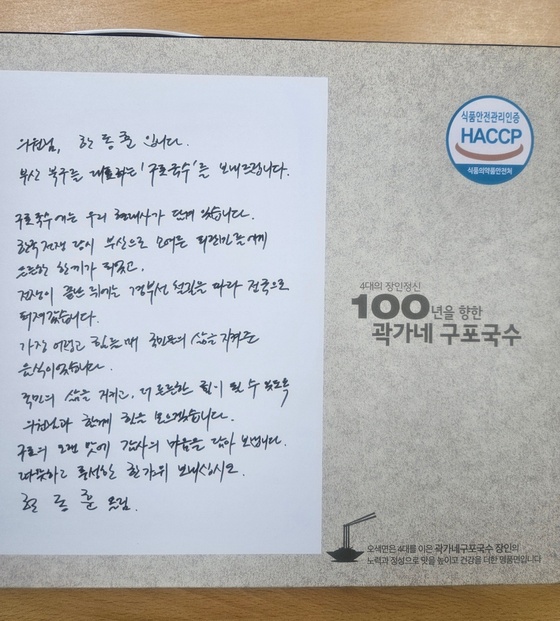 위원님, 한동훈 입니다.
부산 북구를 대표하는 '구포국수'를 보내드립니다.
구포국수에는 우리 현대사가 담겨 있습니다.
한국전쟁 당시 부산으로 모여든 피란민들에게
든든한 한끼가 되었고,
전쟁이 끝난 뒤에는 경부선 철길을 따라 전국으로
퍼져갔습니다.
가장 어렵고 힘들 때 국민들의 삶을 지켜준
음식이었습니다.
국민의 삶을 지키고, 더 든든한 힘이 될 수 있도록
위원님과 함께 힘을 모으겠습니다.
구포의 오랜 맛에 감사의 마음을 담아 보냅니다.
따뜻하고 풍성한 한가위 보내십시오.
한 동 훈 올림.
식품안전관리인증
HACCP
식품의약품안전처
4대의 장인정신
100년을 향한
곽가네 구포국수
오색면은 4대를 이은 곽가네구포국수 장인의
노력과 정성으로 맛을 높이고 건강을 더한 명품면입니다